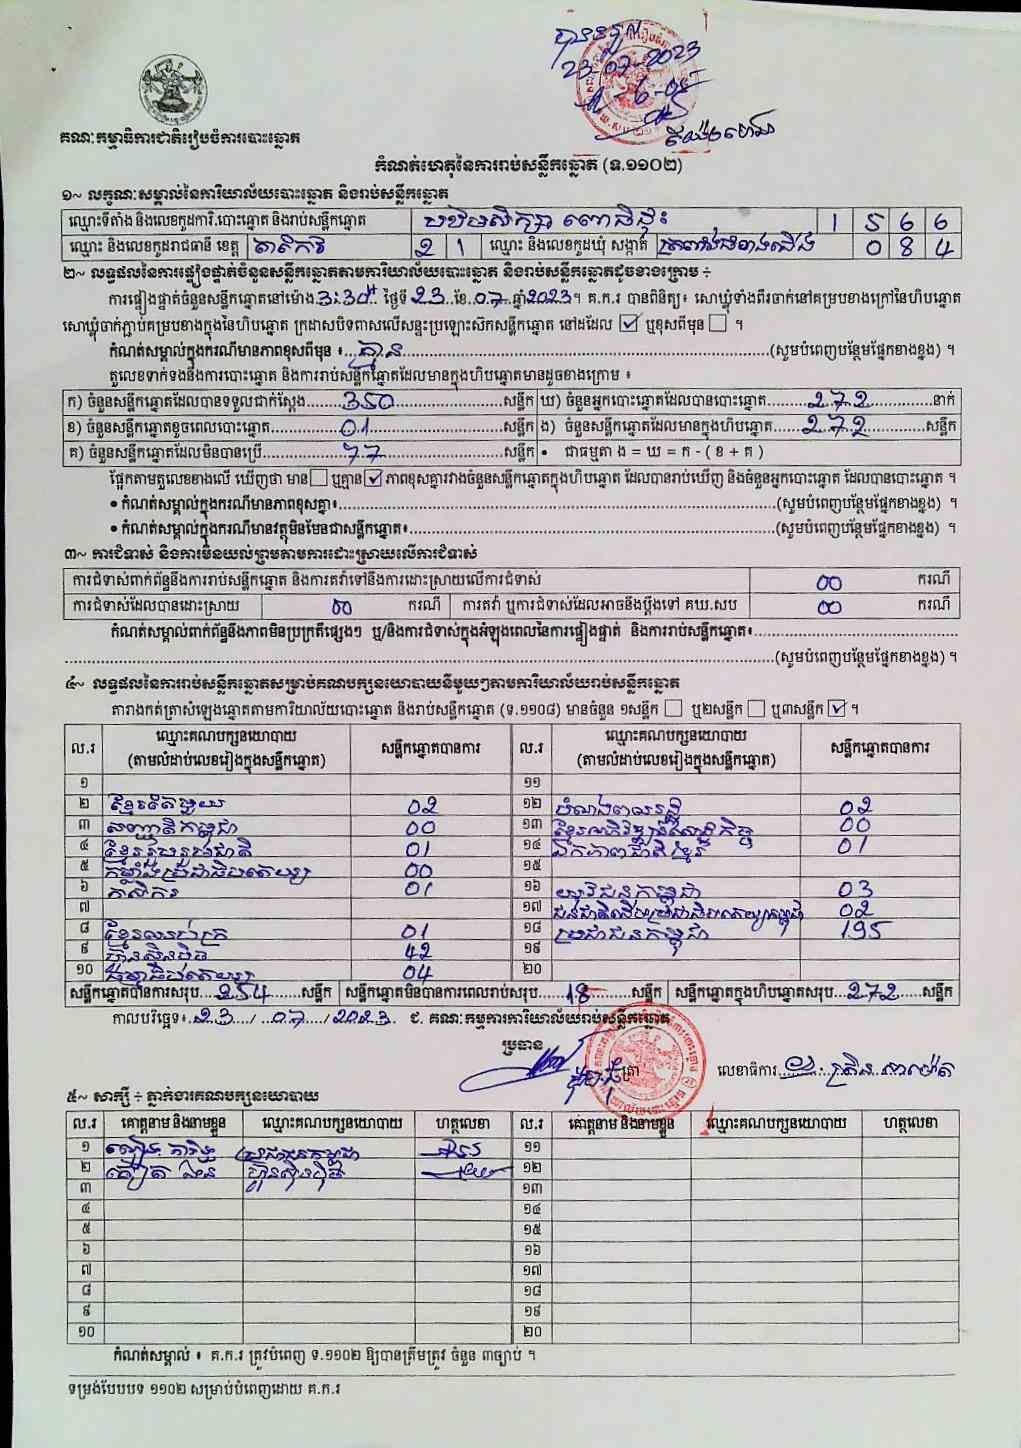 បានទទួល
23-07-2023
គណៈកម្មាធិការជាតិរៀបចំការបោះឆ្នោត
កំណត់ហេតុនៃការរាប់សន្លឹកឆ្នោត (ទ.១១០២)
១~ លក្ខណៈសម្គាល់នៃការិយាល័យបោះឆ្នោត និងរាប់សន្លឹកឆ្នោត
ឈ្មោះទីតាំង និងលេខកូដការិ.បោះឆ្នោត និងរាប់សន្លឹកឆ្នោត បឋមសិក្សា ពោធិដុះ 1 5 6 6
ឈ្មោះ និងលេខកូដរាជធានី ខេត្ត តាកែវ 2 1 ឈ្មោះ និងលេខកូដឃុំ សង្កាត់ ត្រពាំងធំខាងជើង 0 8 4
២~ លទ្ធផលនៃការផ្ទៀងផ្ទាត់ចំនួនសន្លឹកឆ្នោតតាមការិយាល័យបោះឆ្នោត និងរាប់សន្លឹកឆ្នោតដូចខាងក្រោម ÷
ការផ្ទៀងផ្ទាត់ចំនួនសន្លឹកឆ្នោតនៅម៉ោង 3:30 ថ្ងៃទី 23 ខែ 07 ឆ្នាំ 2023។ គ.ក.រ បានពិនិត្យ៖ សោឃ្លុំទាំងពីរចាក់នៅគម្របខាងក្រៅនៃហិបឆ្នោត
សោឃ្លុំចាក់ភ្ជាប់គម្របខាងក្នុងនៃហិបឆ្នោត ក្រដាសបិទពាសលើសន្ទះប្រឡោះសឹកសន្លឹកឆ្នោត នៅដដែល ☑ ឬខុសពីមុន ☐ ។
កំណត់សម្គាល់ក្នុងករណីមានភាពខុសពីមុន ៖ គ្មាន (សូមបំពេញបន្ថែមផ្នែកខាងខ្នង) ។
តួលេខទាក់ទងនឹងការបោះឆ្នោត និងការរាប់សន្លឹកឆ្នោតដែលមានក្នុងហិបឆ្នោតមានដូចខាងក្រោម ៖
ក) ចំនួនសន្លឹកឆ្នោតដែលបានទទួលជាក់ស្តែង 350 សន្លឹក ឃ) ចំនួនអ្នកបោះឆ្នោតដែលបានបោះឆ្នោត 272 នាក់
ខ) ចំនួនសន្លឹកឆ្នោតខូចពេលបោះឆ្នោត 01 សន្លឹក ង) ចំនួនសន្លឹកឆ្នោតដែលមានក្នុងហិបឆ្នោត 272 សន្លឹក
គ) ចំនួនសន្លឹកឆ្នោតដែលមិនបានប្រើ 77 សន្លឹក • ជាធម្មតា ង = ឃ = ក - ( ខ + គ )
ផ្អែកតាមតួលេខខាងលើ ឃើញថា មាន ☐ ឬគ្មាន ☑ ភាពខុសគ្នារវាងចំនួនសន្លឹកឆ្នោតក្នុងហិបឆ្នោត ដែលបានរាប់ឃើញ និងចំនួនអ្នកបោះឆ្នោត ដែលបានបោះឆ្នោត ។
• កំណត់សម្គាល់ក្នុងករណីមានភាពខុសគ្នា៖ (សូមបំពេញបន្ថែមផ្នែកខាងខ្នង) ។
• កំណត់សម្គាល់ក្នុងករណីមានវត្ថុមិនមែនជាសន្លឹកឆ្នោត៖ (សូមបំពេញបន្ថែមផ្នែកខាងខ្នង) ។
៣~ ការជំទាស់ និងការមិនយល់ព្រមតាមការដោះស្រាយលើការជំទាស់
ការជំទាស់ពាក់ព័ន្ធនឹងការរាប់សន្លឹកឆ្នោត និងការតវ៉ាទៅនឹងការដោះស្រាយលើការជំទាស់ 00 ករណី
ការជំទាស់ដែលបានដោះស្រាយ 00 ករណី ការតវ៉ា ឬការជំទាស់ដែលអាចនឹងប្តឹងទៅ គឃ.សប 00 ករណី
កំណត់សម្គាល់ពាក់ព័ន្ធនឹងភាពមិនប្រក្រតីផ្សេងៗ ឬ/និងការជំទាស់ក្នុងអំឡុងពេលនៃការផ្ទៀងផ្ទាត់ និងការរាប់សន្លឹកឆ្នោត៖
(សូមបំពេញបន្ថែមផ្នែកខាងខ្នង) ។
៤~ លទ្ធផលនៃការរាប់សន្លឹកឆ្នោតសម្រាប់គណបក្សនយោបាយនីមួយៗតាមការិយាល័យរាប់សន្លឹកឆ្នោត
តារាងកត់ត្រាសំឡេងឆ្នោតតាមការិយាល័យបោះឆ្នោត និងរាប់សន្លឹកឆ្នោត (ទ.១១០៨) មានចំនួន ១សន្លឹក ☐ ឬ២សន្លឹក ☐ ឬ៣សន្លឹក ☑ ។
ល.រ ឈ្មោះគណបក្សនយោបាយ សន្លឹកឆ្នោតបានការ ល.រ ឈ្មោះគណបក្សនយោបាយ សន្លឹកឆ្នោតបានការ
(តាមលំដាប់លេខរៀងក្នុងសន្លឹកឆ្នោត) (តាមលំដាប់លេខរៀងក្នុងសន្លឹកឆ្នោត)
១ ១១
២ ខ្មែរតែមួយ 02 ១២ បំណងពលរដ្ឋ 02
៣ សញ្ជាតិកម្ពុជា 00 ១៣ ខ្មែរអភិវឌ្ឍន៍សេដ្ឋកិច្ច 00
៤ ខ្មែររួបរួមជាតិ 01 ១៤ ឯកភាពជាតិខ្មែរ 01
៥ កម្លាំងប្រជាធិបតេយ្យ 00 ១៥
៦ កសិករ 01 ១៦ យុវជនកម្ពុជា 03
៧ ១៧ ជនជាតិដើមប្រជាធិបតេយ្យកម្ពុជា 02
៨ ខ្មែរឈប់ក្រ 01 ១៨ ប្រជាជនកម្ពុជា 195
៩ ហ៊្វុនស៊ិនប៉ិច 42 ១៩
១០ ធម្មាធិបតេយ្យ 04 ២០
សន្លឹកឆ្នោតបានការសរុប 254 សន្លឹក សន្លឹកឆ្នោតមិនបានការពេលរាប់សរុប 18 សន្លឹក សន្លឹកឆ្នោតក្នុងហិបឆ្នោតសរុប 272 សន្លឹក
កាលបរិច្ឆេទ៖ 23 / 07 / 2023 ជ. គណៈកម្មការការិយាល័យរាប់សន្លឹកឆ្នោត
ប្រធាន
ត្រា លេខាធិការ
៥~ សាក្សី ÷ ភ្នាក់ងារគណបក្សនយោបាយ
ល.រ គោត្តនាម និងនាមខ្លួន ឈ្មោះគណបក្សនយោបាយ ហត្ថលេខា ល.រ គោត្តនាម និងនាមខ្លួន ឈ្មោះគណបក្សនយោបាយ ហត្ថលេខា
១ ប្រជាជនកម្ពុជា ១១
២ ហ៊្វុនស៊ិនប៉ិច ១២
៣ ១៣
៤ ១៤
៥ ១៥
៦ ១៦
៧ ១៧
៨ ១៨
៩ ១៩
១០ ២០
កំណត់សម្គាល់ ៖ គ.ក.រ ត្រូវបំពេញ ទ.១១០២ ឱ្យបានត្រឹមត្រូវ ចំនួន ៣ច្បាប់ ។
ទម្រង់បែបបទ ១១០២ សម្រាប់បំពេញដោយ គ.ក.រ